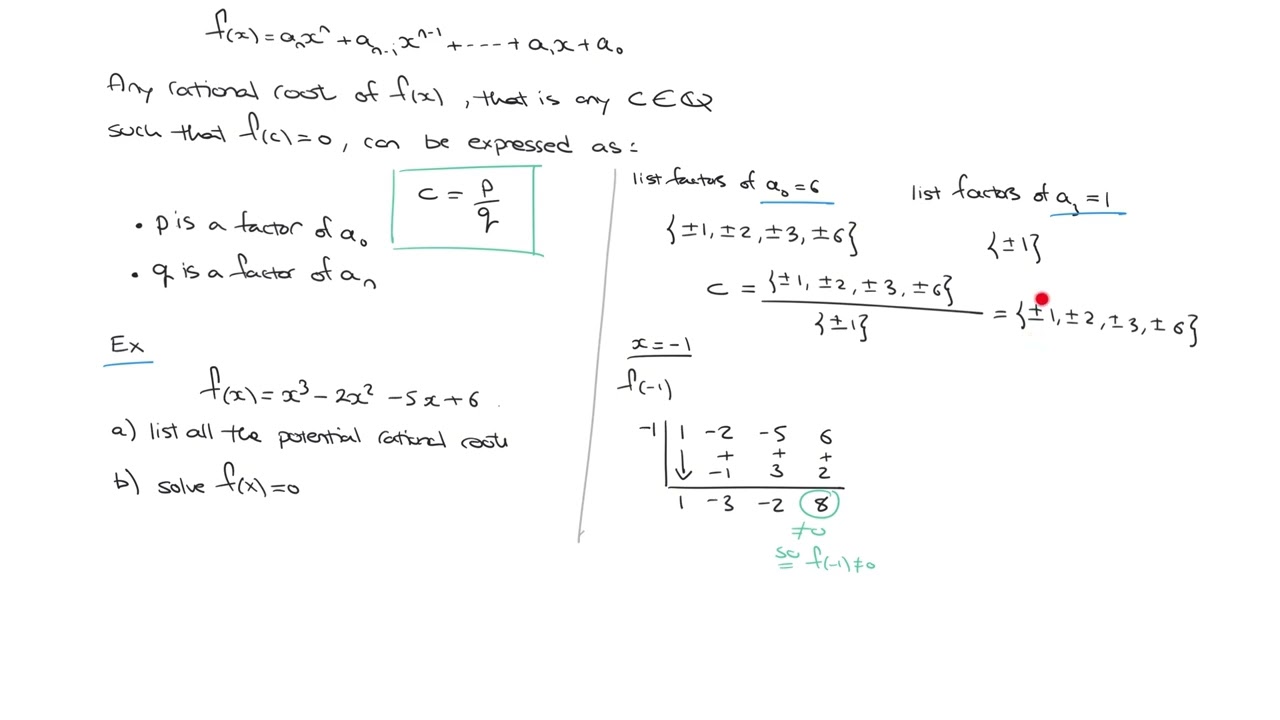 f(x) = aₙxⁿ + aₙ₋₁xⁿ⁻¹ + ---- + a₁x + a₀
Any rational root of f(x), that is any C ∈ ℚ
such that f(c) = 0, can be expressed as:
c = p/q
• p is a factor of a₀
• q is a factor of aₙ
Ex
f(x) = x³ - 2x² - 5x + 6
a) list all the potential rational roots
b) solve f(x) = 0
list factors of a₀ = 6
{±1, ±2, ±3, ±6}
list factors of a₃ = 1
{±1}
c = {±1, ±2, ±3, ±6} / {±1} = {±1, ±2, ±3, ±6}
x = -1
f(-1)
-1 | 1 -2 -5 6
↓ + + +
-1 3 2
1 -3 -2 8
≠0
so f(-1) ≠ 0